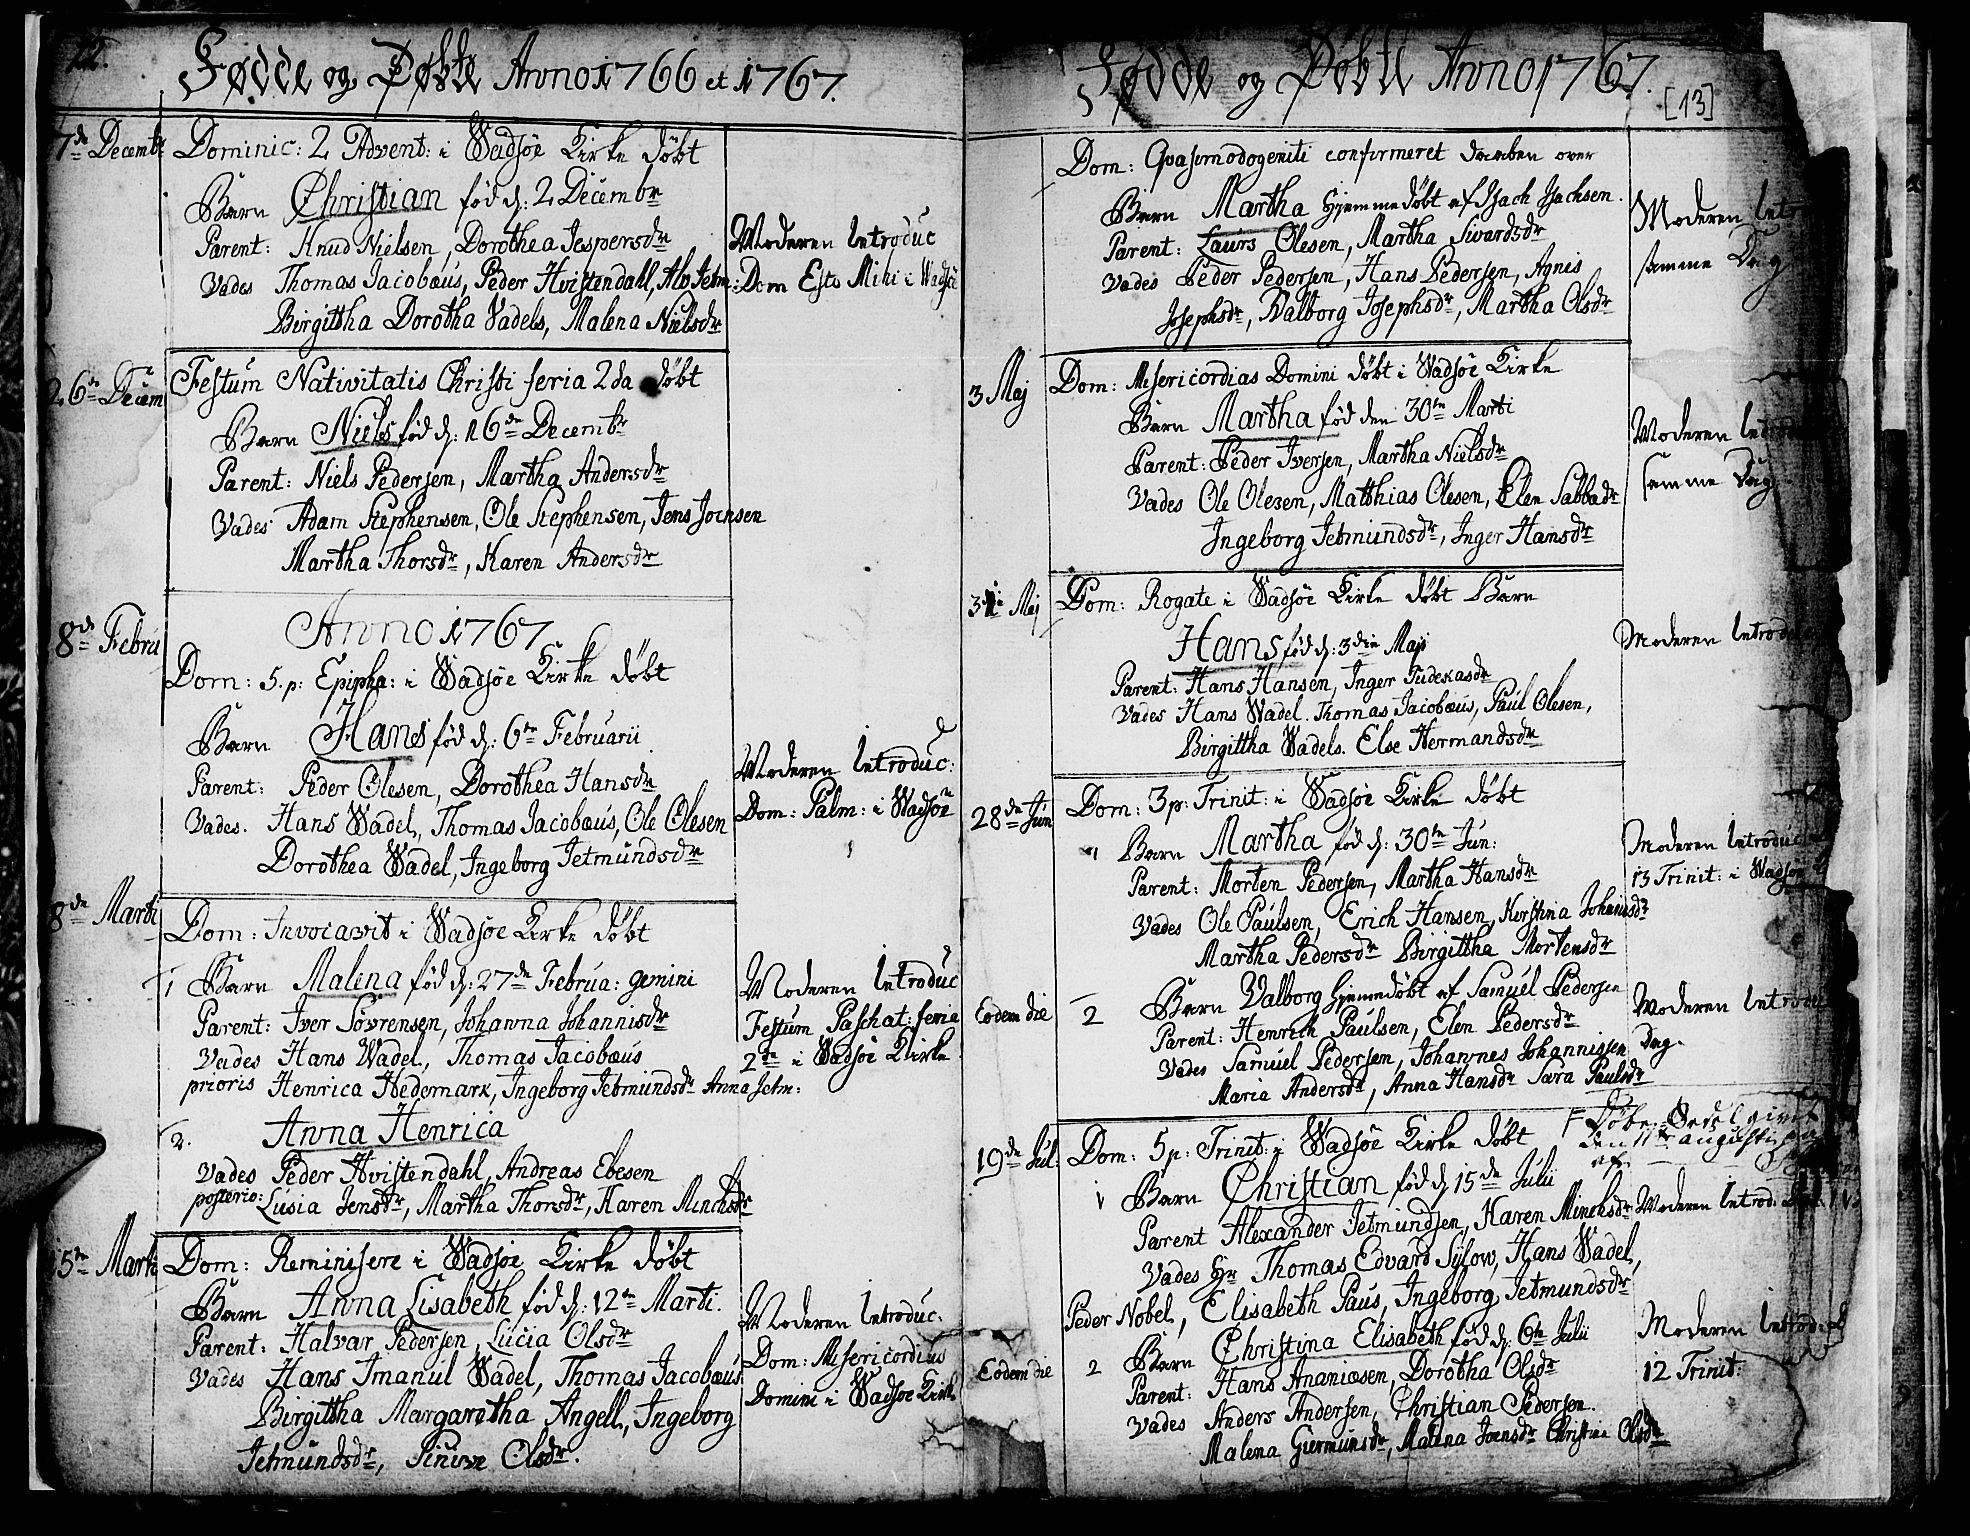 12.
Fødde og Døbte Anno 1766 et 1767.
7de Decembr
Dominic: 2 Advent: i Wadsöe Kirke döbt
Barn Christian fød d: 2 Decembr
Parent: Knud Nielsen, Dorothea Jespersdr
Vades Thomas Jacobæus, Peder Hvistendahl, Alb Jetm:
Birgittha Dorotha Wadels, Malena Nielsdr
Moderen Introduc
Dom Esto Mihi i Wadsöe
26de Decem
Festum Nativitatis Christi feria 2da döbt
Barn Niels fød d: 16de Decembr
Parent: Niels Pedersen, Martha Andersdr
Vades Adam Stephensen, Ole Stephensen, Jens Joensen
Martha Thorsdr, Karen Andersdr
Anno 1767
8de Febru
Dom: 5. p: Epipha: i Wadsöe Kirke döbt
Barn Hans fød d: 6te Februarii
Parent: Peder Olesen, Dorothea Hansdr
Vades. Hans Wadel, Thomas Jacobæus, Ole Olesen
Dorothea Wadel, Ingeborg Jetmundsdr
Moderen Introduc:
Dom: Palm: i Wadsöe
8de Marti
Dom: Invocavit i Wadsöe Kirke döbt
1 Barn Malena fød d: 27de Februa: gemini
Parent: Iver Sövrensen, Johanna Johannisdr
Vades Hans Wadel, Thomas Jacobæus
prioris Henrica Hedemark, Ingeborg Jetmundsdr Anna Jetm:
Moderen Introduc
Festum Paschat: feria
2da i Wadsöe Kirke
2. Anna Henrica
Vades Peder Hvistendahl, Andreas Ebesen
posterio: Lusia Jensdr, Martha Thorsdr, Karen Minchsdr
15te Marti
Dom: Reminisere i Wadsöe Kirke döbt
Barn Anna Lisabeth fød d: 12te Marti.
Parent: Halvar Pedersen, Lucia Olsdr
Vades Hans Imanul Wadel, Thomas Jacobæus
Birgittha Margaretha Angell, Ingeborg
Jetmundsdr, Sinive Olsdr.
Moderen Introduc:
Dom: Misericordias
Domini i Wadsöe Kirke
Fødde og Døbte Anno 1767.
[13]
Dom: Qvasimodogeniti confirmeret Daaben over
Barn Martha Hjemmedöbt af Isach Isachsen.
Parent: Laurs Olesen, Martha Sivardsdr
Vades Peder Pedersen, Hans Pedersen, Agnis
Josephsdr, Walborg Josephsdr, Martha Olsdr
Moderen Intro
samme Dag
3 Maj
Dom: Misericordias Domini döbt i Wadsöe Kirke
Barn Martha fød den 30te Marti
Parent: Peder Iversen, Martha Nielsdr
Vades Ole Olesen, Matthias Olesen, Elen Sabbadr
Ingeborg Jetmundsdr, Inger Hansdr
Moderen Introd
samme Dag
31 Maj
Dom: Rogate i Wadsöe Kirke döbt Barn
Hans fød d: 3die Maji
Parent: Hans Hansen, Inger Tudekasdr
Vades Hans Wadel. Thomas Jacobæus, Paul Olesen,
Birgittha Wadels. Else Hermandsdr
Moderen Introd
28de Jun
Dom: 3 p: Trinit: i Wadsöe Kirke döbt
1 Barn Martha fød d: 30te Jun:
Parent: Morten Pedersen, Martha Hansdr
Vades Ole Paulsen, Erich Hansen, Kerstina Johanisdr
Martha Pedersdr Birgittha Mortensdr
Moderen Introduc
13 Trinit: i Wadsöe
Eodem die
2 Barn Valborg Hjemmedöbt af Samuel Pedersen
Parent: Henrich Paulsen, Elen Pedersdr
Vades Samuel Pedersen, Johannes Johannissen
Maria Andersdr, Anna Hansdr Sara Paulsdr
Moderen Introdu
Dag.
Döbe-Sedel givet
den 11te augusti
af
19de Jul:
Dom: 5 p: Trinit: i Wadsöe Kirke döbt
1 Barn Christian fød d 15de Julii
Parent Alexander Jetmundsen, Karen Minchsdr
Vades Hr Thomas Edvard Sylow, Hans Wadel,
Peder Nobel, Elisabeth Paus, Ingeborg Jetmundsdr
Moderen Introd.
Eodem die
2 Barn Christina Elisabeth fød d: 6te Julii
Parent: Hans Ananiasen, Dorotha Olsdr
Vades Anders Andersen, Christian Pedersen.
Malena Giermunsdr, Malena Joensdr Christine Olsdr
Moderen Introd:
12 Trinit: